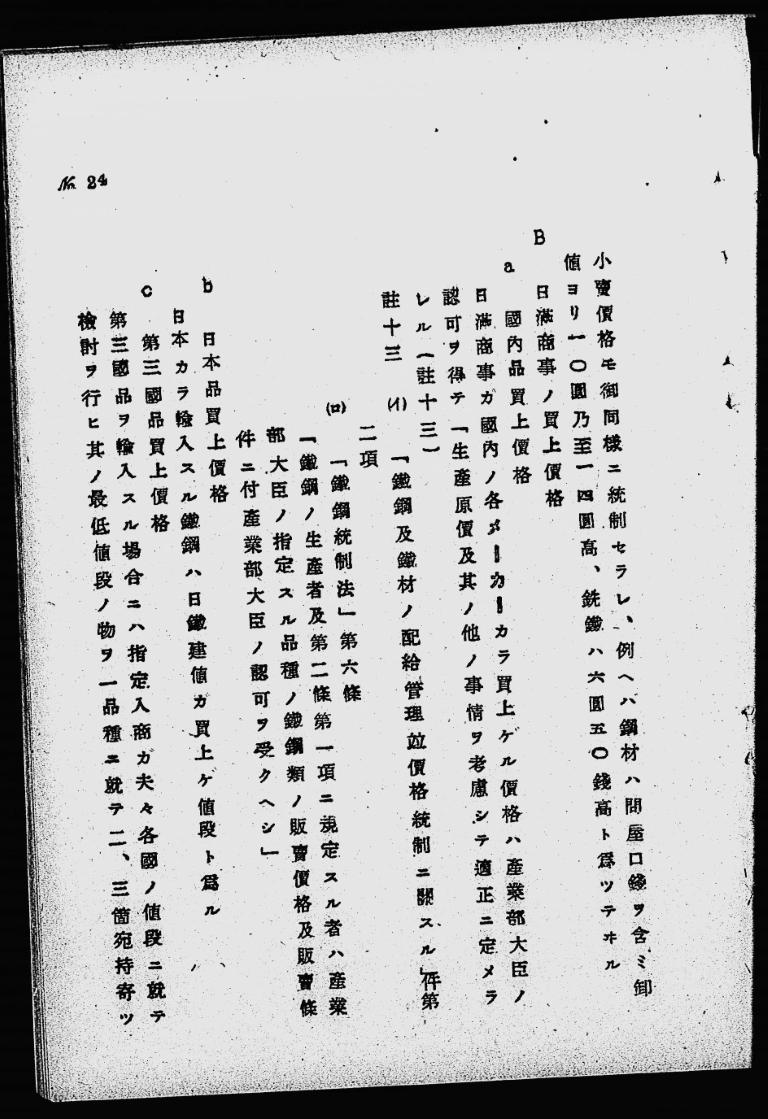 小賣價格モ御同樣ニ統制セラレ、例ヘハ鋼材ハ問屋口錢ヲ含ミ卸
値ヨリ一〇圓乃至一四圓高、銑鐵ハ六圓五〇錢高ト爲ツテヰル
B 日滿商事ノ買上價格
a 國內品買上價格
日滿商事カ國內ノ各メーカーカラ買上ケル價格ハ產業部大臣ノ
認可ヲ得テ「生產原價及其ノ他ノ事情ヲ考慮シテ適正ニ定メラ
レル(註十三)
註十三 (イ) 「鐵鋼及鐵材ノ配給管理竝價格統制ニ關スル」件第
二項
(ロ) 「鐵鋼統制法」第六條
「鐵鋼ノ生產者及第二條第一項ニ規定スル者ハ產業
部大臣ノ指定スル品種ノ鐵鋼類ノ販賣價格及販賣條
件ニ付產業部大臣ノ認可ヲ受クヘシ」
b 日本品買上價格
日本カラ輸入スル鐵鋼ハ日鐵建値カ買上ケ値段ト爲ル
c 第三國品買上價格
第三國品ヲ輸入スル場合ニハ指定入商ガ夫々各國ノ値段ニ就テ
檢討ヲ行ヒ其ノ最低値段ノ物ヲ一品種ニ就テ二、三箇宛持寄ツ
No. 24